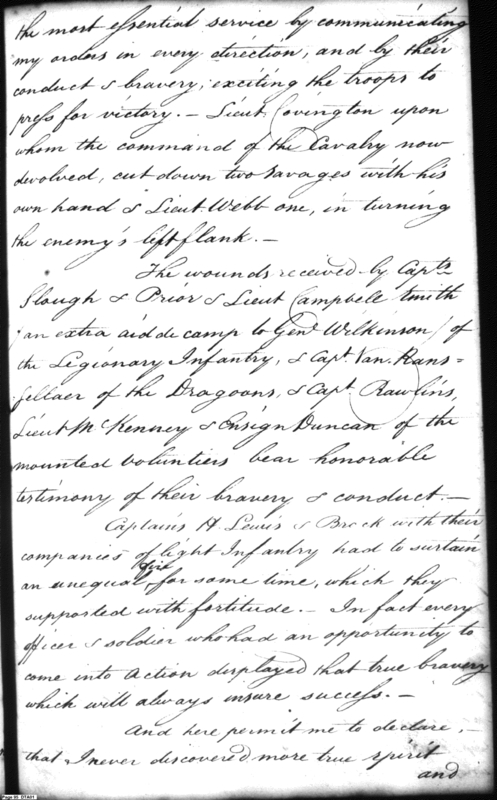 the most essential service by communicating
my orders in every direction, and by their
conduct & bravery; exciting the troops to
press for victory. — Lieut. Covington upon
whom the command of the Cavalry now
devolved, cut down two savages with his
own hand & Lieut. Webb one, in turning
the enemy's left flank. —
The wounds received by Capts
Slough & Prior & Lieut Campbell Smith
(an extra aid de camp to Genl Wilkinson) of
the Legionary Infantry, & Capt. Van. Rans=
sellaer of the Dragoons, & Capt. Rawlins,
Lieut McKenney & Ensign Duncan of the
mounted Voluntiers bear honorable
testimony of their bravery & conduct. —
Captains H Lewis & Brock with their
companies of light Infantry had to sustain
an unequal fire for some time, which they
supported with fortitude. — In fact every
officer & soldier who had an opportunity to
come into action displayed that true bravery
which will always insure success. —
And here permit me to declare, —
that I never discovered more true spirit
and